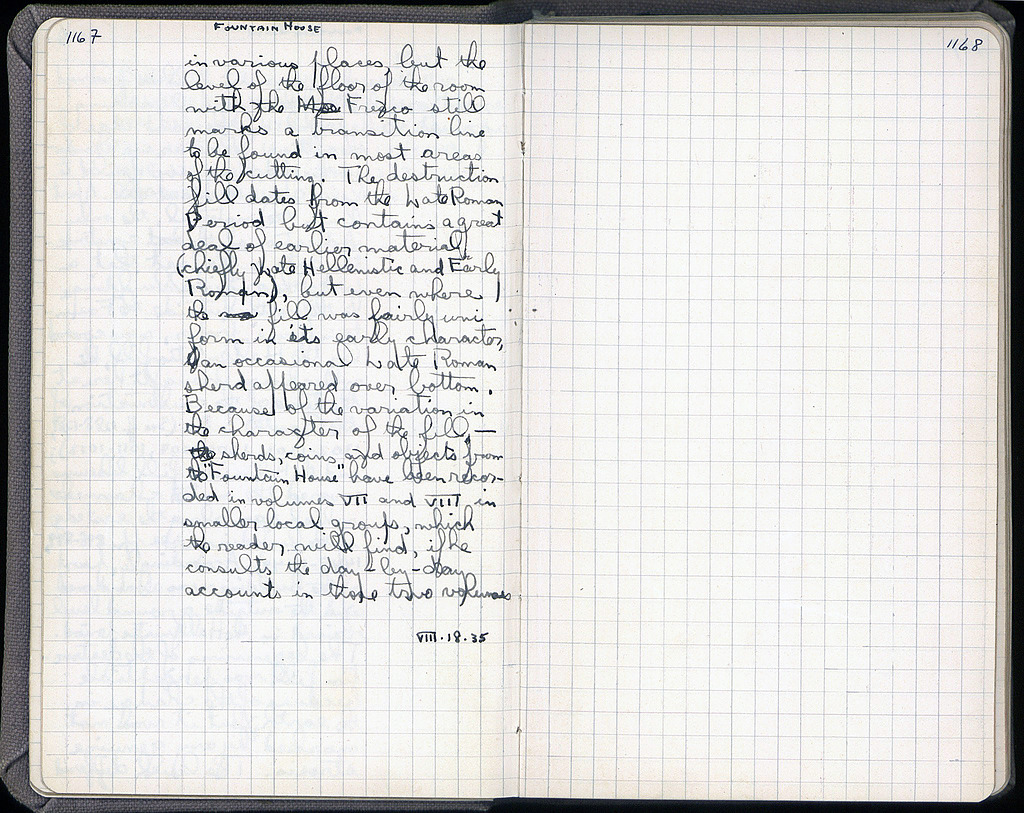 1167
FOUNTAIN HOUSE
in various places, but the
level of the floor of the room
with the Frezco still
marks a transition line
to be found in most areas
of the cutting. The destruction
fill dates from the Late Roman
Period but contains a great
deal of earlier material,
(chiefly Late Hellenistic and Early
Roman), but even where
the fill was fairly uni
form in its early character,
an occasional Late Roman
sherd appeared over bottom.
Because of the variation in
the character of the fill, —
the sherds, coins and objects from
the "Fountain House" have been recor-
ded in volumes VII and VIII in
smaller local groups, which
the reader will find, if he
consults the day-by-day
accounts in those two volumes
VIII.18.35
1168